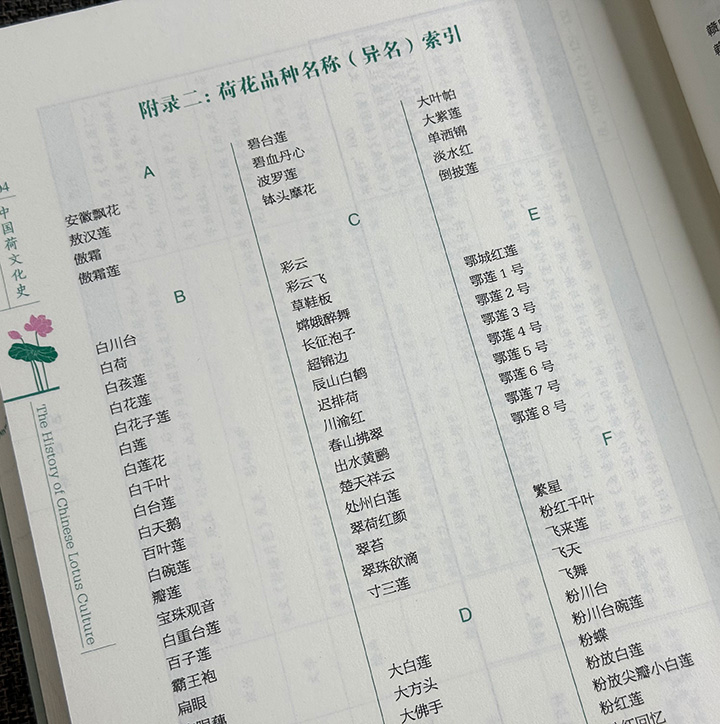 附录二：荷花品种名称（异名）索引
A
安徽飘花
敖汉莲
傲霜
傲霜莲
B
白川台
白荷
白孩莲
白花莲
白花子莲
白莲
白莲花
白千叶
白台莲
白天鹅
百叶莲
白碗莲
瓣莲
宝珠观音
白重台莲
百子莲
霸王袍
扁眼
碧台莲
碧血丹心
波罗莲
钵头摩花
C
彩云
彩云飞
草鞋板
嫦娥醉舞
长征泡子
超锦边
辰山白鹤
迟排荷
川渝红
春山拂翠
出水黄鹂
楚天祥云
处州白莲
翠荷红颜
翠苔
翠珠欲滴
寸三莲
D
大白莲
大方头
大佛手
大叶帕
大紫莲
单洒锦
淡水红
倒披莲
E
鄂城红莲
鄂莲1号
鄂莲2号
鄂莲3号
鄂莲4号
鄂莲5号
鄂莲6号
鄂莲7号
鄂莲8号
F
繁星
粉红千叶
飞来莲
飞天
飞舞
粉川台
粉川台碗莲
粉蝶
粉放白莲
粉放尖瓣小白莲
粉红莲
中国荷文化史
The History of Chinese Lotus Culture